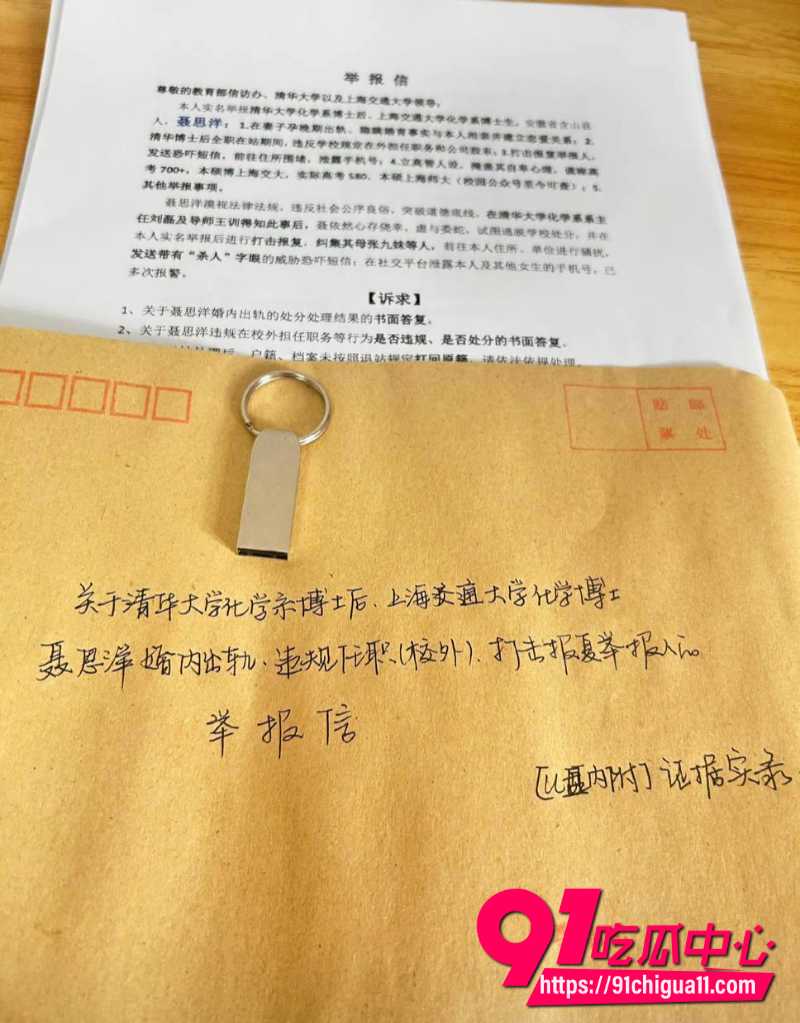 举报信
尊敬的教育部信访办、清华大学以及上海交通大学领导：
本人实名举报清华大学化学系博士后、上海交通大学化学系博士生，安徽省含山县
人，聂思洋：1.在妻子孕晚期出轨，隐瞒婚育事实与本人相亲并建立恋爱关系；2.
清华博士后全职在站期间，违反学校规定在外担任职务和公司股东；3.打击报复举报人，
发送恐吓短信，前往住所围堵，泄露手机号；4.立高智人设，掩盖其自卑心理，谎称高
考700+，本硕博上海交大，实际高考580，本硕上海师大（校园公众号至今可查）；5.
其他举报事项。
聂思洋漠视法律法规，违反社会公序良俗，突破道德底线，在清华大学化学系系主
任刘磊及导师王训得知此事后，聂依然心存侥幸，虚与委蛇，试图逃脱学校处分，并在
本人实名举报后进行打击报复，纠集其母张九妹等人，前往本人住所、单位进行骚扰，
发送带有“杀人”字眼的威胁恐吓短信；在社交平台泄露本人及其他女生的手机号，已
多次报警。
【诉求】
1、关于聂思洋婚内出轨的处分处理结果的书面答复。
2、关于聂思洋违规在校外担任职务等行为是否违规、是否处分的书面答复。
户籍、档案未按照退站规定打回原籍，请依法依规处理
贴 邮
票 处
关于清华大学化学系博士后、上海交通大学化学博士
聂思洋婚内出轨、违规任职(校外)、打击报复举报人的
举报信
[U盘内附]证据实录
91吃瓜中心
https://91chigua11.com